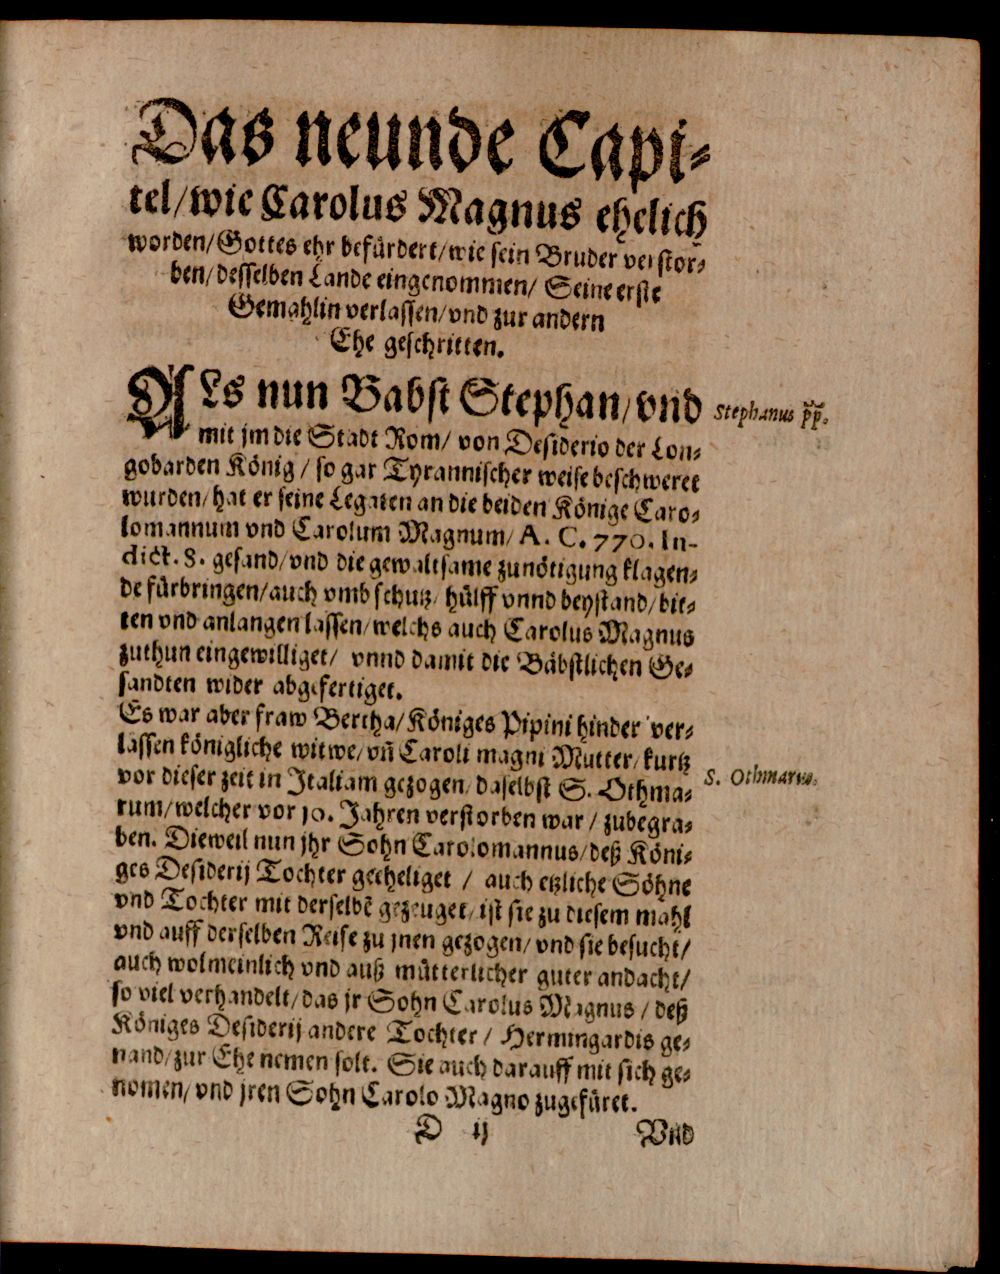 Das neunde Capi-
tel/wie Carolus Magnus ehelich
worden/Gottes ehr befürdert/wie sein Bruder verstor-
ben/desselben Lande eingenommen/ Seine erste
Gemahlin verlassen/vnd zur andern
Ehe geschritten.
ALs nun Babst Stephan/vnd
Stephanus pp.
mit jm die Stadt Rom/ von Desiderio der Lon-
gobarden König/ so gar Tyrannischer weise beschweret
wurden/hat er seine Legaten an die beiden Könige Caro-
lomannum vnd Carolum Magnum/ A. C. 770. In-
dict. 8. gesand/vnd die gewaltsame zunötigung klagen-
de fürbringen/auch vmb schutz/ hülff vnnd beystand/bit-
ten vnd anlangen lassen/welchs auch Carolus Magnus
zuthun eingewilliget/ vnnd damit die Bäbstlichen Ge-
sandten wider abgefertiget.
Es war aber fraw Bertha/Königes Pipini hinder ver-
lassen königliche witwe/vñ Caroli magni Mutter/kurtz
vor dieser zeit in Italiam gezogen/daselbst S. Othma-
S. Othmarus.
rum/welcher vor 10. Jahren verstorben war/ zubegra-
ben. Dieweil nun jhr Sohn Carolomannus/deß Köni-
ges Desiderij Tochter geeheliget / auch etzliche Söhne
vnd Tochter mit derselbẽ gezeuget/ist sie zu diesem mahl
vnd auff derselben Reise zu jnen gezogen/vnd sie besucht/
auch wolmeinlich vnd auß mütterlicher guter andacht/
so viel verhandelt/das jr Sohn Carolus Magnus/ deß
Königes Desiderij andere Tochter/ Hermingardis ge-
nand/zur Ehe nemen solt. Sie auch darauff mit sich ge-
nomen/vnd jren Sohn Carolo Magno zugefüret.
D ij
Vnd